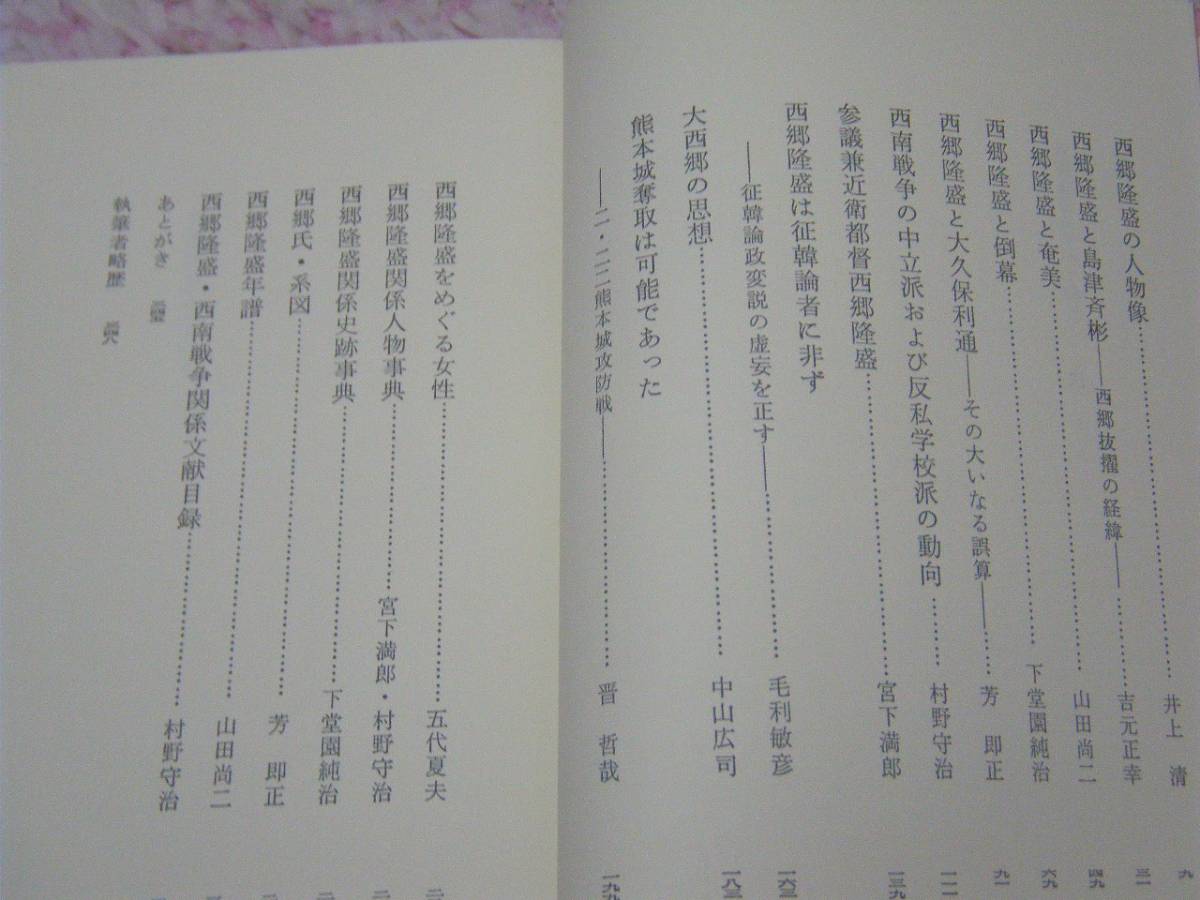 西郷隆盛の人物像……井上　清　九
西郷隆盛と島津斉彬――西郷抜擢の経緯――……吉元正幸　三一
西郷隆盛と奄美……山田尚二　四九
西郷隆盛と倒幕……下堂園純治　六九
西郷隆盛と大久保利通――その大いなる誤算――……芳　即正　九一
西南戦争の中立派および反私学校派の動向……村野守治　一一一
参議兼近衛都督西郷隆盛……宮下満郎　一三九
西郷隆盛は征韓論者に非ず
――征韓論政変説の虚妄を正す――……毛利敏彦　一六三
大西郷の思想……中山広司　一八三
熊本城奪取は可能であった
――二・二二熊本城攻防戦――……晋　哲哉　一九九
西郷隆盛をめぐる女性……五代夏夫
西郷隆盛関係人物事典……宮下満郎・村野守治
西郷隆盛関係史跡事典……下堂園純治
西郷氏・系図……芳　即正
西郷隆盛年譜……山田尚二
西郷隆盛・西南戦争関係文献目録……村野守治
あとがき
執筆者略歴